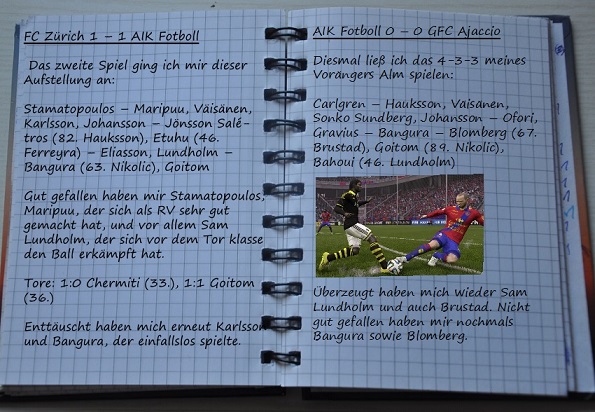 FC Zürich 1 – 1 AIK Fotboll
Das zweite Spiel ging ich mir dieser
Aufstellung an:
Stamatopoulos – Maripuu, Väisänen,
Karlsson, Johansson – Jönsson Salé-
tros (82. Hauksson), Etuhu (46.
Ferreyra) – Eliasson, Lundholm –
Bangura (63. Nikolic), Goitom
Gut gefallen haben mir Stamatopoulos,
Maripuu, der sich als RV sehr gut
gemacht hat, und vor allem Sam
Lundholm, der sich vor dem Tor klasse
den Ball erkämpft hat.
Tore: 1:0 Chermiti (33.), 1:1 Goitom
(36.)
Enttäuscht haben mich erneut Karlsson
und Bangura, der einfallslos spielte.
AIK Fotboll 0 – 0 GFC Ajaccio
Diesmal ließ ich das 4-3-3 meines
Vorängers Alm spielen:
Carlgren – Hauksson, Väisänen,
Sonko Sundberg, Johansson – Ofori,
Gravius – Bangura – Blomberg (67.
Brustad), Goitom (89. Nikolic),
Bahoui (46. Lundholm)
Überzeugt haben mich wieder Sam
Lundholm und auch Brustad. Nicht
gut gefallen haben mir nochmals
Bangura sowie Blomberg.